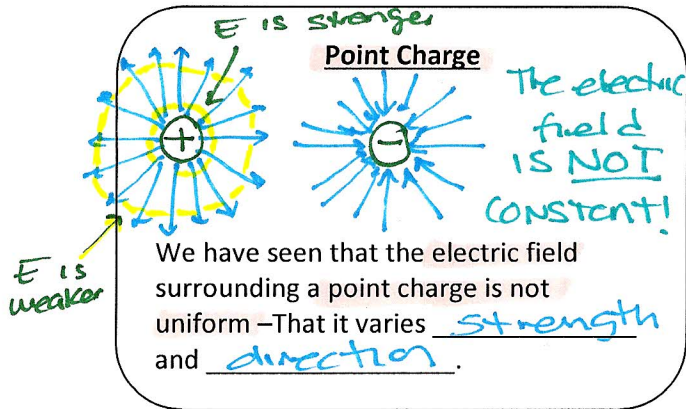 E is stronger
Point Charge
+
-
The electric
field
IS NOT
CONSTENT!
E is
weaker
We have seen that the electric field
surrounding a point charge is not
uniform –That it varies strength
and direction.